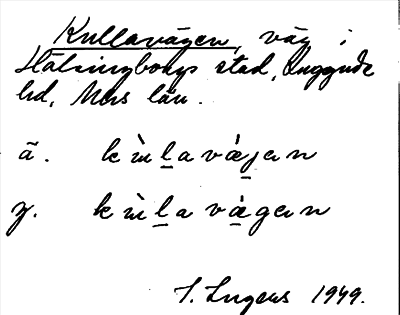 Kullavägen, väg i
Hälsingborgs stad, Luggude
hd, Mns län.
ä. kùlavǻjan
y. kùlavàgan
I. Ingers 1949.